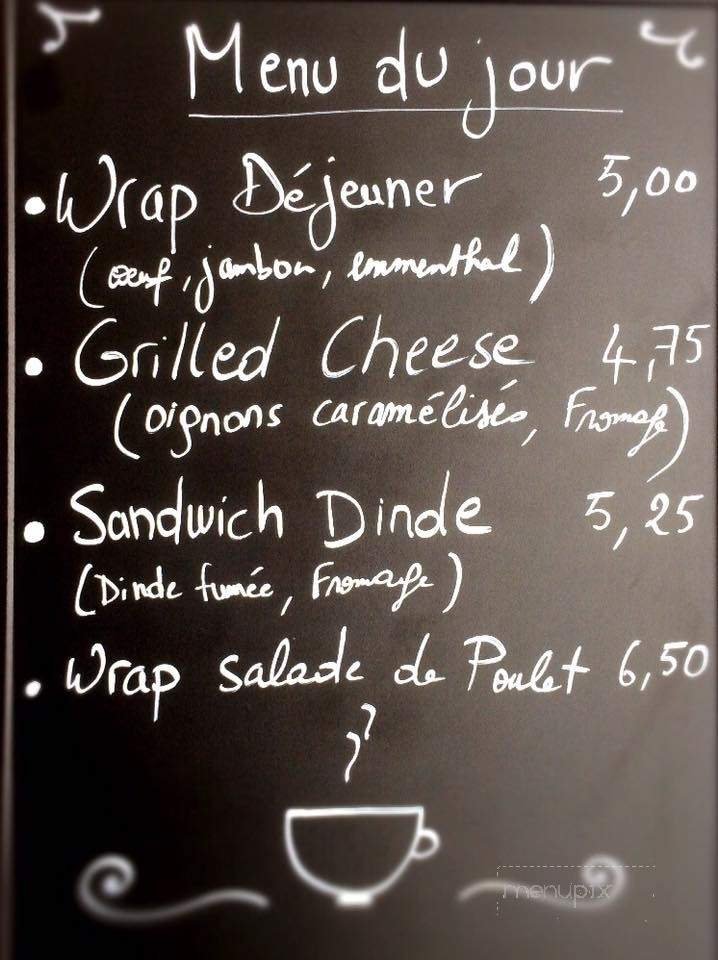 Menu du jour
• Wrap Déjeuner 5,00
(oeuf, jambon, emmenthal)
• Grilled Cheese 4,75
(oignons caramélisés, Fromage)
• Sandwich Dinde 5,25
(Dinde fumée, Fromage)
• Wrap salade de Poulet 6,50
menupix